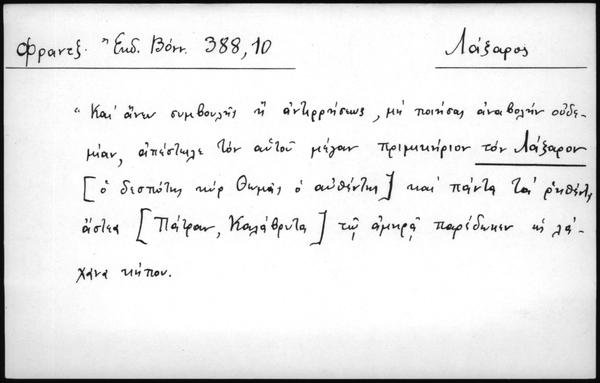 Φραντζ. Ἐκδ. Βόνν. 388,10
Λάξαρος
"Καὶ ἄνευ συμβουλῆς ἢ ἀντιρρήσεως, μὴ ποιήσας ἀναβολὴν οὐδε-
μίαν, ἀπέστειλε τὸν αὐτοῦ μέγαν πριμικήριον τὸν Λάξαρον
[ὁ δεσπότης κὺρ Θωμᾶς ὁ αὐθέντης] καὶ πάντα τὰ ῥηθέντα
ἄστεα [Πάτραν, Καλάβρυτα] τῷ ἀμηρᾷ παρέδωκεν ὡς λά-
χανα κήπου.